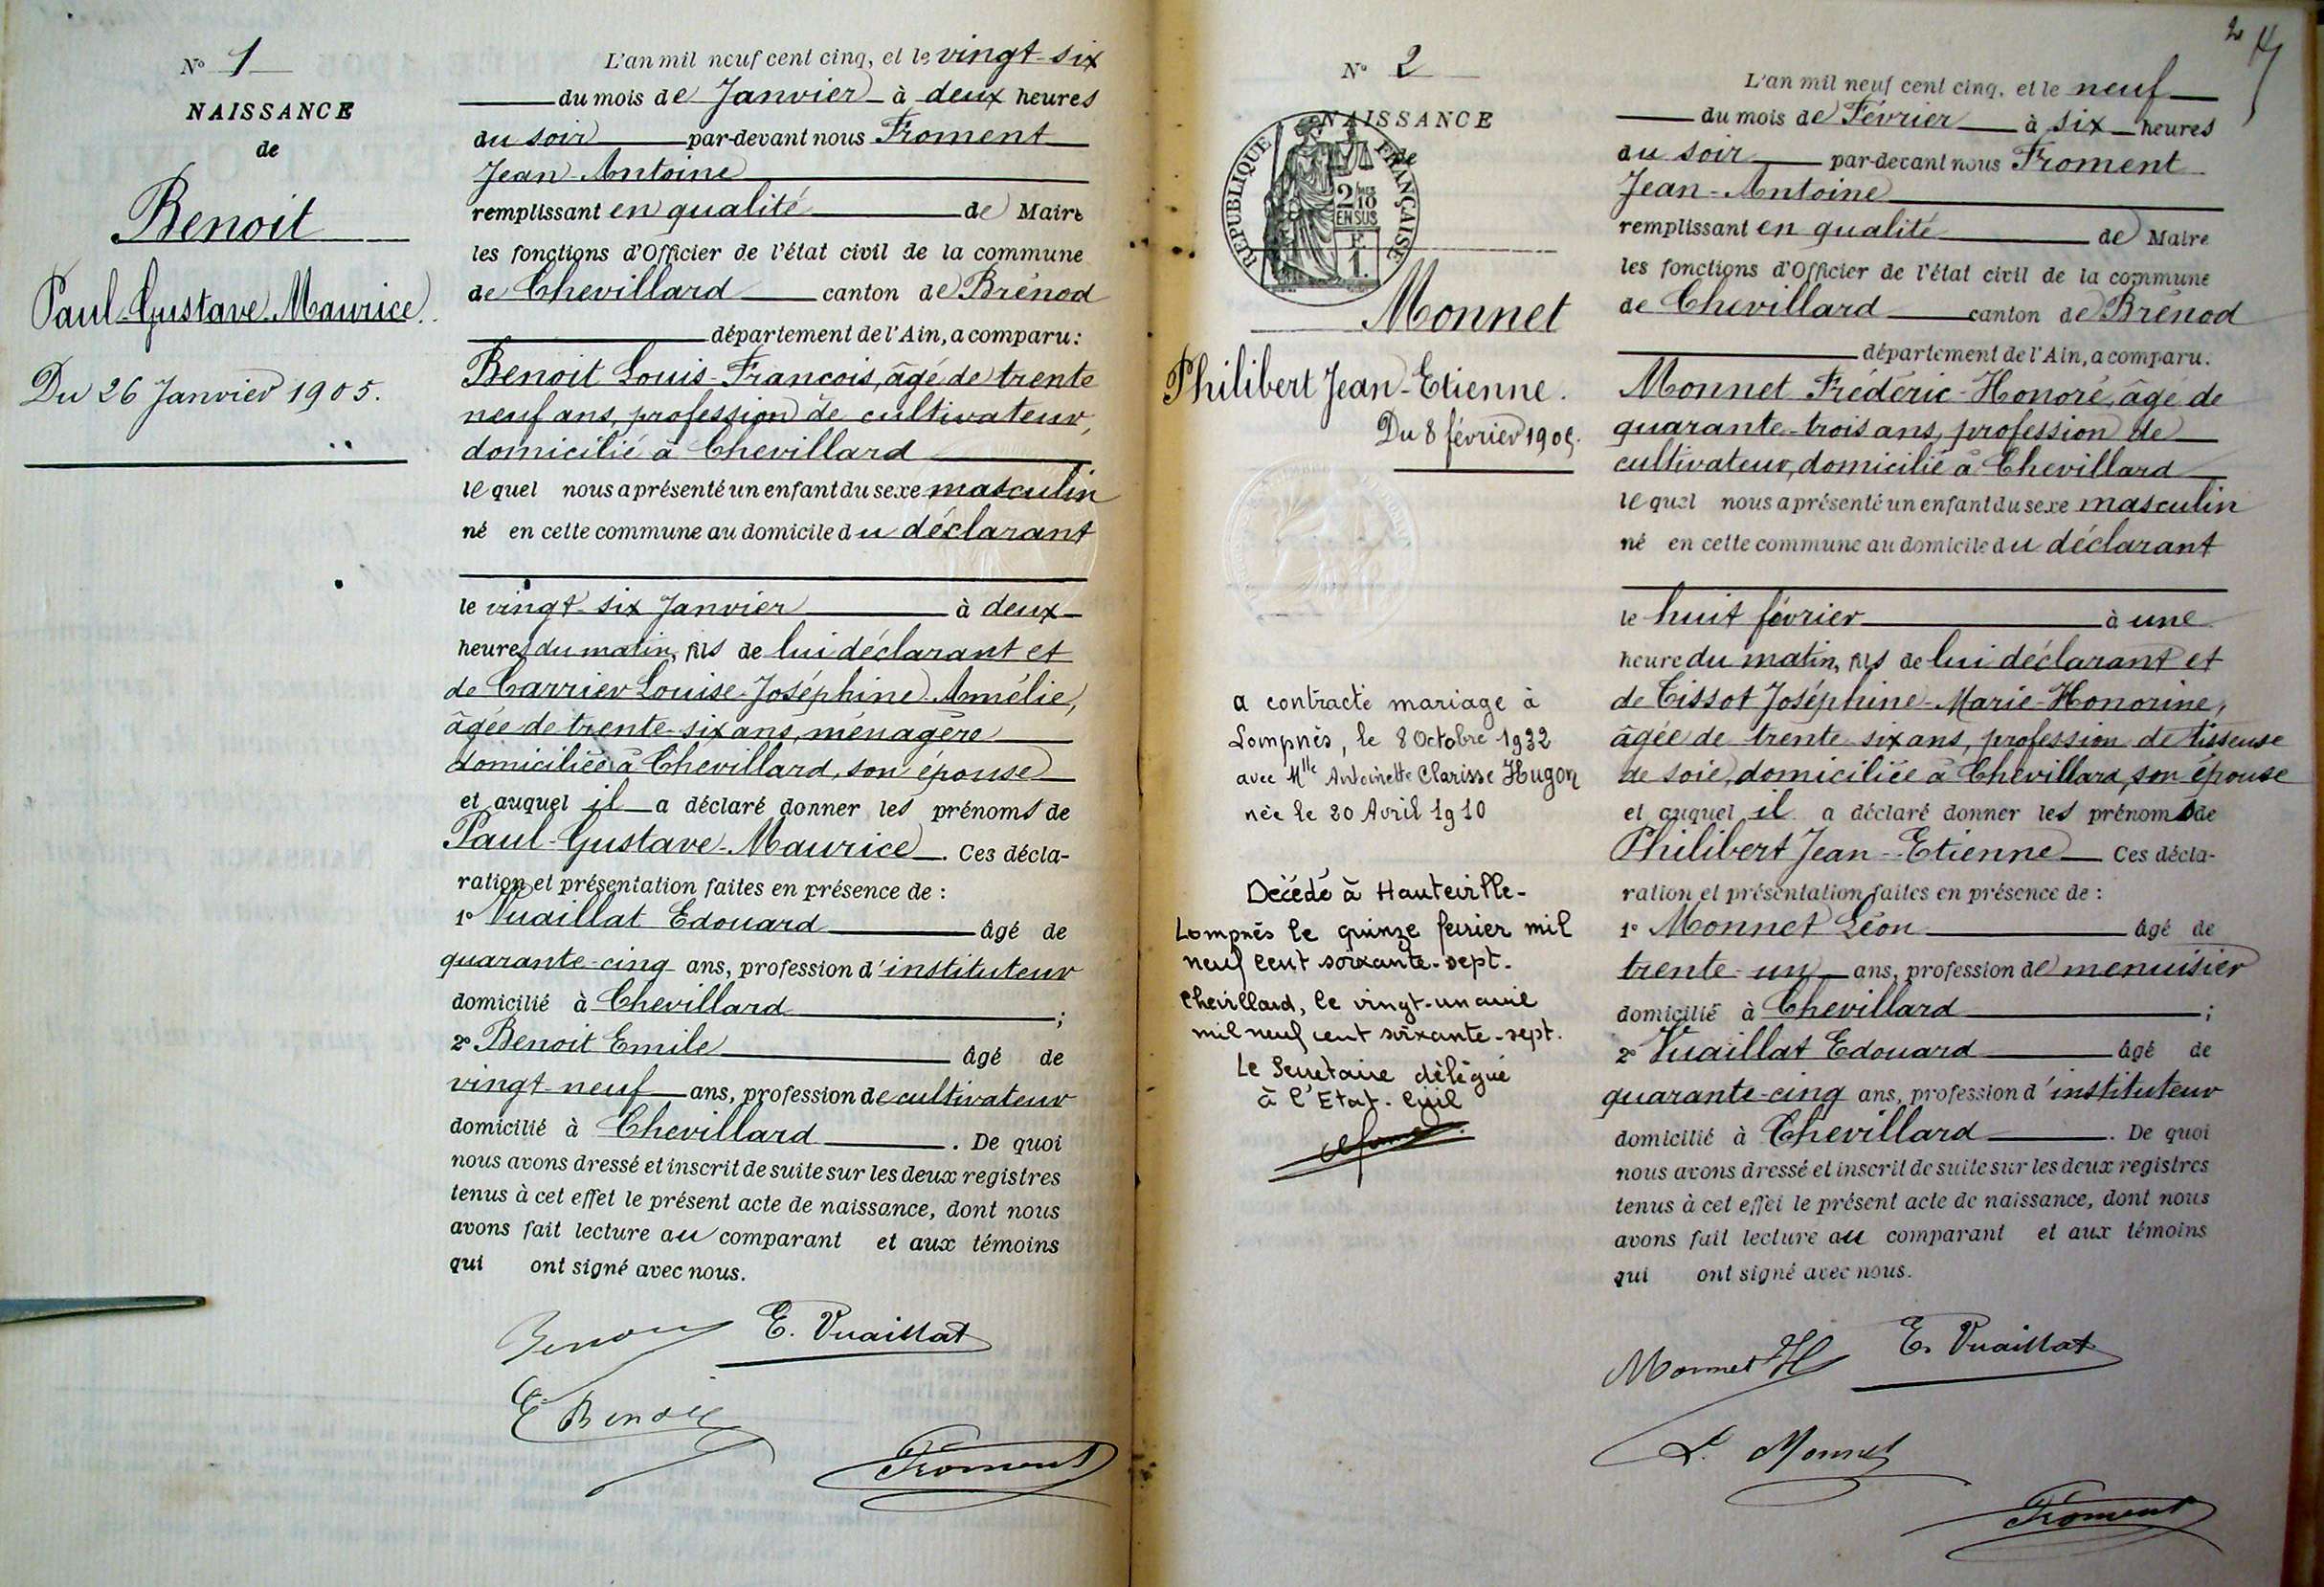 N° 1
NAISSANCE
de
Benoit
Paul-Gustave-Maurice.
Du 26 Janvier 1905.
L'an mil neuf cent cinq, et le vingt-six
du mois de Janvier à deux heures
du soir par-devant nous Froment
Jean-Antoine
remplissant en qualité de Maire
les fonctions d'Officier de l'état civil de la commune
de Chevillard canton de Brénod
département de l'Ain, a comparu:
Benoit Louis-François, âgé de trente
neuf ans, profession de cultivateur,
domicilié à Chevillard
lequel nous a présenté un enfant du sexe masculin
né en cette commune au domicile du déclarant
le vingt-six Janvier à deux
heures du matin, fils de lui déclarant et
de Carrier Louise-Joséphine-Amélie,
âgée de trente-six ans, ménagère
domiciliée à Chevillard, son épouse
et auquel il a déclaré donner les prénoms de
Paul-Gustave-Maurice. Ces décla-
ration et présentation faites en présence de :
1° Vuaillat Edouard âgé de
quarante-cinq ans, profession d'instituteur
domicilié à Chevillard ;
2° Benoit Emile âgé de
vingt-neuf ans, profession de cultivateur
domicilié à Chevillard . De quoi
nous avons dressé et inscrit de suite sur les deux registres
tenus à cet effet le présent acte de naissance, dont nous
avons fait lecture au comparant et aux témoins
qui ont signé avec nous.
Benoit E. Vuaillat
E Benoit
Froment
2
N° 2
NAISSANCE
de
REPUBLIQUE FRANÇAISE
2/10
EN SUS
F.
1.
Monnet
Philibert Jean-Etienne.
Du 8 février 1905.
a contracté mariage à
Lompnès, le 8 Octobre 1932
avec Mlle Antoinette Clarisse Hugon
née le 20 Avril 1910
Décédé à Hauteville-
Lompnès le quinze février mil
neuf cent soixante-sept.
Chevillard, le vingt-un avril
mil neuf cent soixante-sept.
Le Secrétaire délégué
à l'Etat-Civil
L'an mil neuf cent cinq, et le neuf
du mois de Février à six heures
du soir par-devant nous Froment
Jean-Antoine
remplissant en qualité de Maire
les fonctions d'Officier de l'état civil de la commune
de Chevillard canton de Brénod
département de l'Ain, a comparu.
Monnet Frédéric-Honoré, âgé de
quarante-trois ans, profession de
cultivateur, domicilié à Chevillard
lequel nous a présenté un enfant du sexe masculin
né en cette commune au domicile du déclarant
le huit février à une
heure du matin, fils de lui déclarant et
de Tissot Joséphine-Marie-Honorine,
âgée de trente six ans, profession de tisseuse
de soie, domiciliée à Chevillard, son épouse
et auquel il a déclaré donner les prénoms de
Philibert Jean-Etienne Ces décla-
ration et présentation faites en présence de :
1° Monnet Léon âgé de
trente-un ans, profession de menuisier
domicilié à Chevillard ;
2° Vuaillat Edouard âgé de
quarante-cinq ans, profession d'instituteur
domicilié à Chevillard . De quoi
nous avons dressé et inscrit de suite sur les deux registres
tenus à cet effet le présent acte de naissance, dont nous
avons fait lecture au comparant et aux témoins
qui ont signé avec nous.
Monnet H E. Vuaillat
L. Monnet
Froment